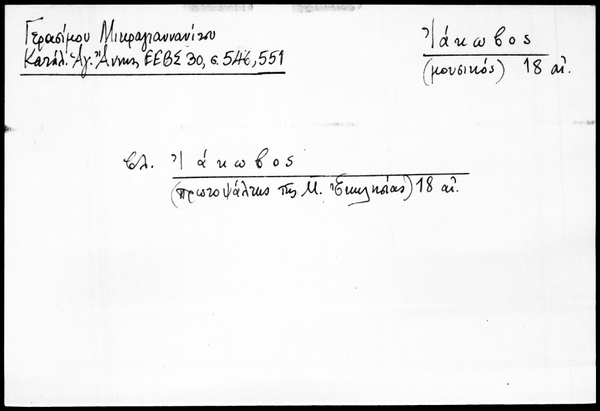 Γερασίμου Μικραγιαννανίτου
Κατάλ. Ἁγ. Ἄννης ΕΕΒΣ 30, σ. 546, 551
Ἰάκωβος
(μουσικός) 18 αἰ.
βλ. Ἰάκωβος
(πρωτοψάλτης τῆς Μ. Ἐκκλησίας) 18 αἰ.